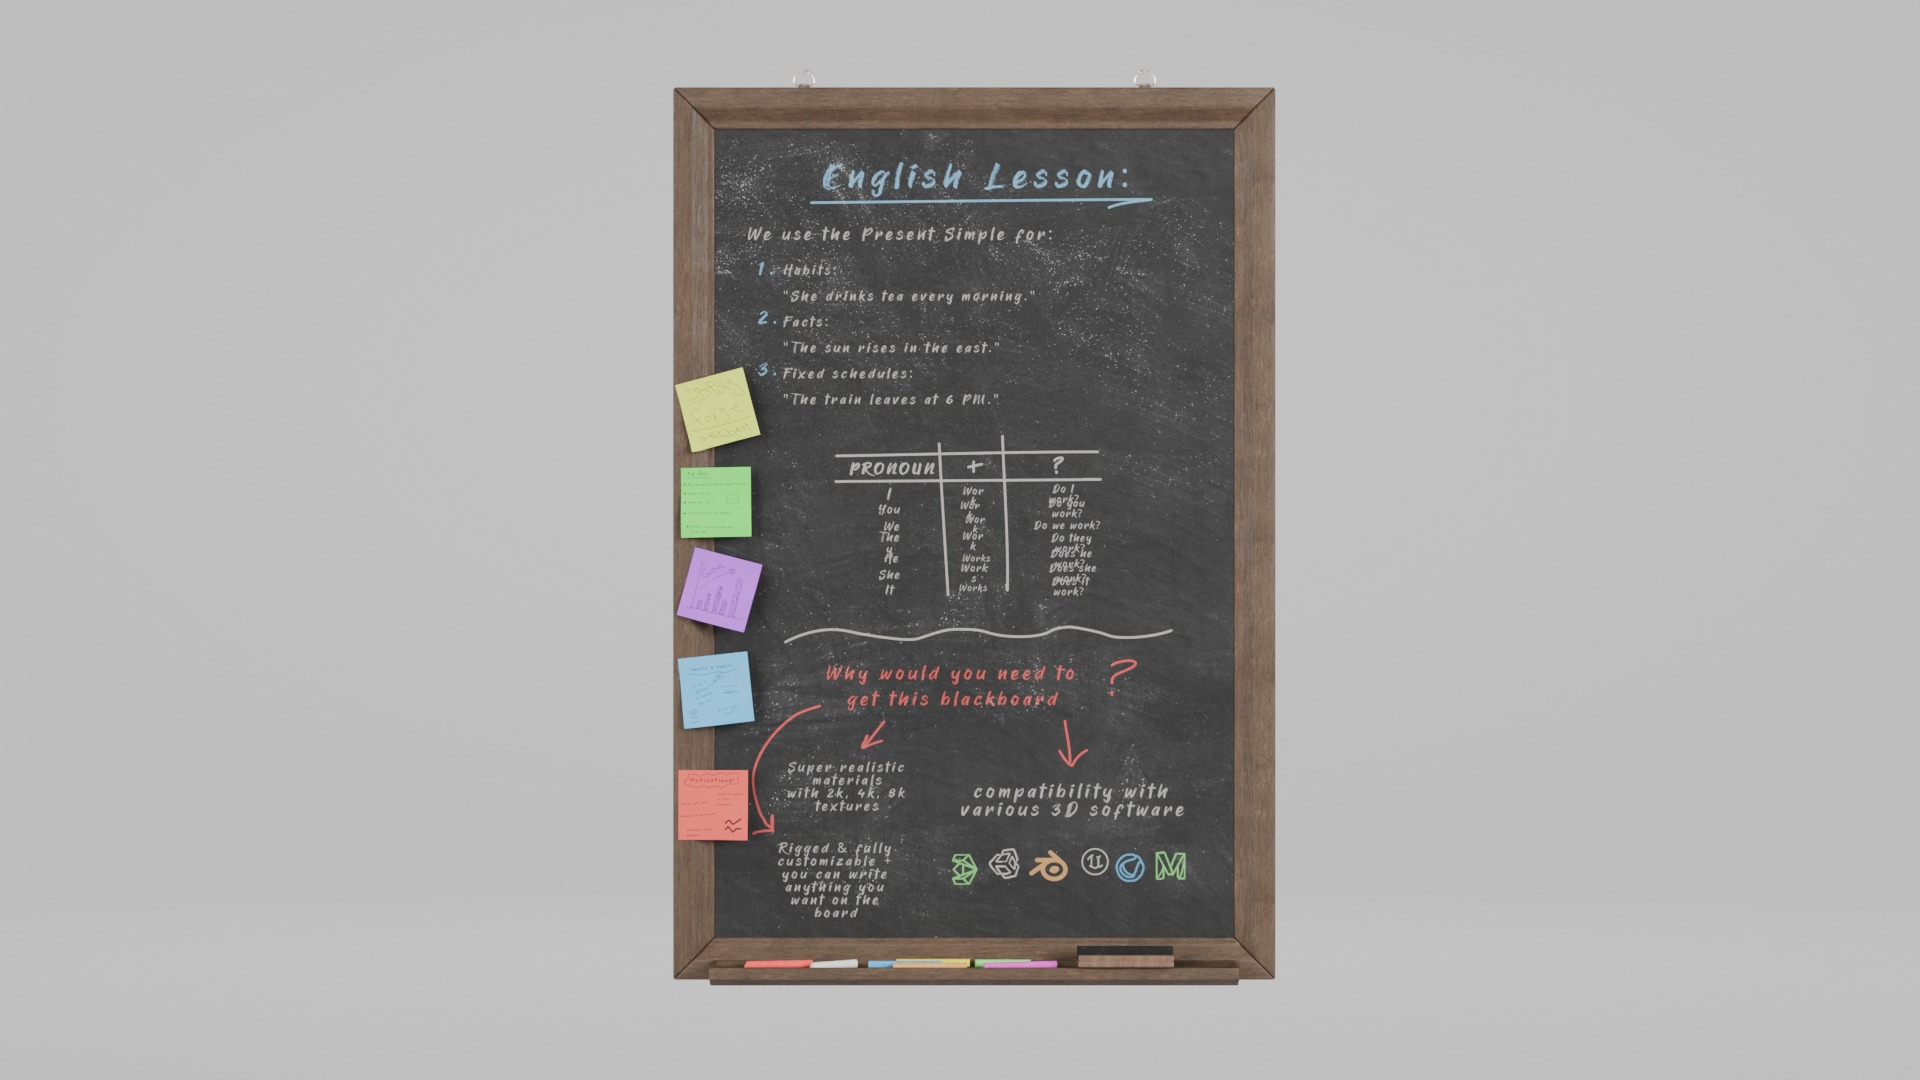 English Lesson:
We use the Present Simple for:
1. Habits:
"She drinks tea every morning."
2. Facts:
"The sun rises in the east."
3. Fixed schedules:
"The train leaves at 6 PM."
PRONOUN + ?
I Wor k Do I work?
You Wor k Do you work?
We Wor k Do we work?
The y Wor k Do they work?
He Works Does he work?
She Work s Does she work?
It Works Does it work?
Why would you need to
get this blackboard ?
Super realistic
materials
with 2k, 4k, 8k
textures
compatibility with
various 3D software
Rigged & fully
customizable +
you can write
anything you
want on the
board
Motivational